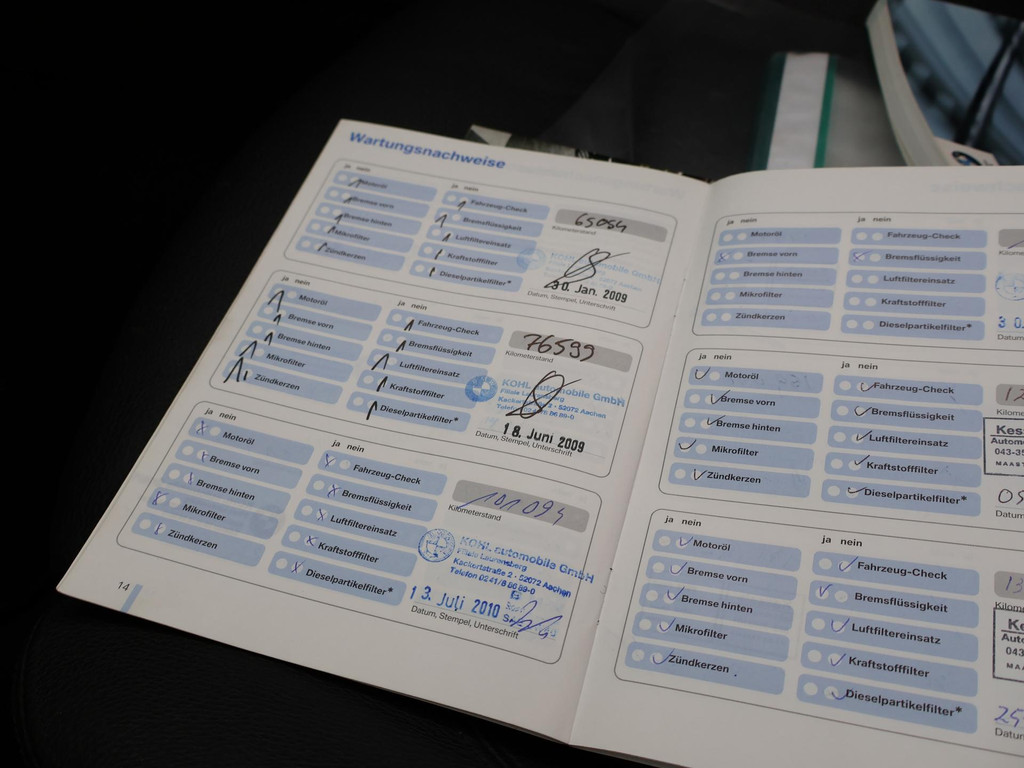 Wartungsnachweise
ja nein
Motoröl
Bremse vorn
Bremse hinten
Mikrofilter
Zündkerzen
ja nein
Fahrzeug-Check
Bremsflüssigkeit
Luftfiltereinsatz
Kraftstofffilter
Dieselpartikelfilter*
65054
Kilometerstand
KOHL automobile GmbH
30. Jan. 2009
Datum, Stempel, Unterschrift
ja nein
Motoröl
Bremse vorn
Bremse hinten
Mikrofilter
Zündkerzen
ja nein
Fahrzeug-Check
Bremsflüssigkeit
Luftfiltereinsatz
Kraftstofffilter
Dieselpartikelfilter*
76599
Kilometerstand
KOHL automobile GmbH
Filiale Laurensberg
52072 Aachen
18. Juni 2009
Datum, Stempel, Unterschrift
ja nein
Motoröl
Bremse vorn
Bremse hinten
Mikrofilter
Zündkerzen
ja nein
Fahrzeug-Check
Bremsflüssigkeit
Luftfiltereinsatz
Kraftstofffilter
Dieselpartikelfilter*
101094
Kilometerstand
KOHL automobile GmbH
Filiale Laurensberg
Kackertstraße 2 - 52072 Aachen
Telefon 0241/5 68 89-0
13. Juli 2010
Datum, Stempel, Unterschrift
14
ja nein
Motoröl
Bremse vorn
Bremse hinten
Mikrofilter
Zündkerzen
ja nein
Fahrzeug-Check
Bremsflüssigkeit
Luftfiltereinsatz
Kraftstofffilter
Dieselpartikelfilter*
Kilome
3 0
Datum
ja nein
Motoröl
Bremse vorn
Bremse hinten
Mikrofilter
Zündkerzen
ja nein
Fahrzeug-Check
Bremsflüssigkeit
Luftfiltereinsatz
Kraftstofffilter
Dieselpartikelfilter*
12
Kilom
Kes
Autom
043-3
MAAST
Datu
ja nein
Motoröl
Bremse vorn
Bremse hinten
Mikrofilter
Zündkerzen
ja nein
Fahrzeug-Check
Bremsflüssigkeit
Luftfiltereinsatz
Kraftstofffilter
Dieselpartikelfilter*
13
Kilom
Ke
Auto
043
MAA
25
Datu